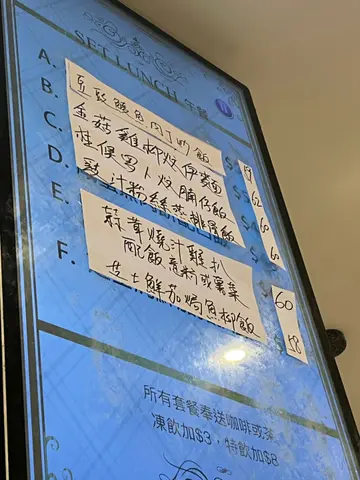 SET LUNCH 午餐
A.
B. 豆豉鯪魚肉丁炒飯 $
C. 金菇雞柳炆伊麵 $ 62
D. 柱侯蘿卜炆腩仔飯 $ 60
E. 豉汁粉絲蒸排骨飯 $ 60
蒜茸燒汁雞扒
配飯意粉或薯菜 60
F. 芝士鮮茄焗魚柳飯 $ 58
所有套餐奉送咖啡或茶
凍飲加$3，特飲加$8